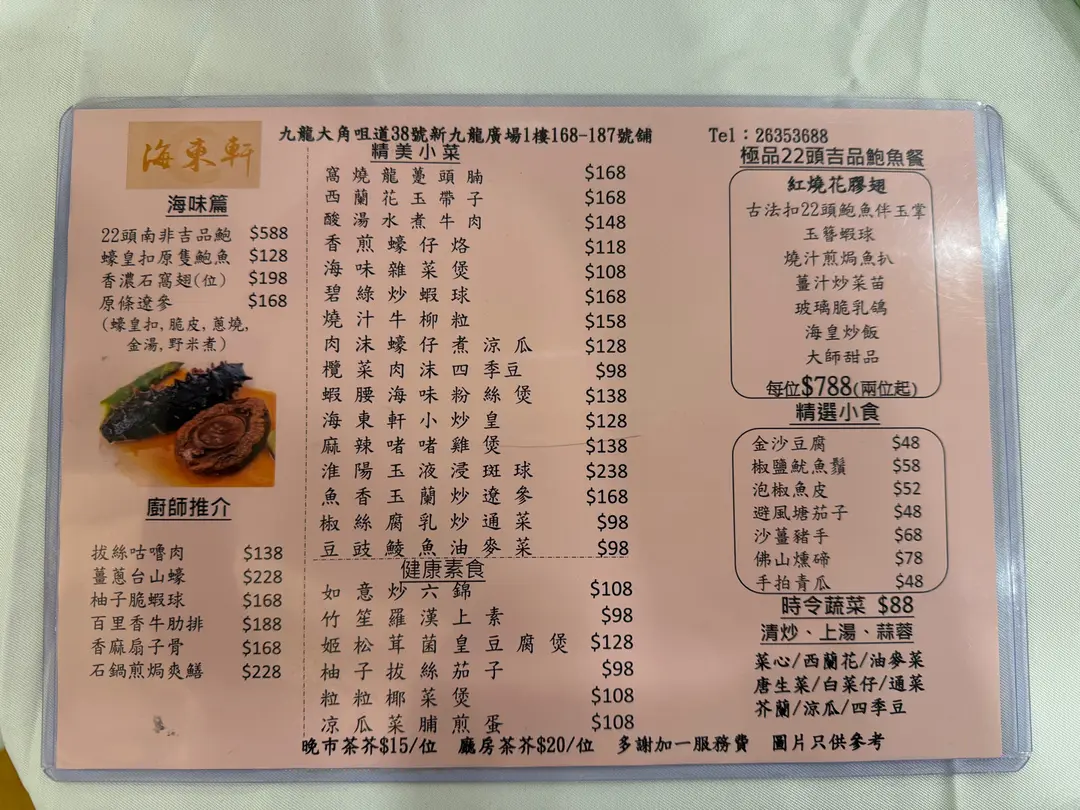 海東軒
九龍大角咀道38號新九龍廣場1樓168-187號舖
Tel：26353688
海味篇
22頭南非吉品鮑 $588
蠔皇扣原隻鮑魚 $128
香濃石窩翅(位) $198
原條遼參 $168
(蠔皇扣,脆皮,蔥燒,
金湯,野米煮)
廚師推介
拔絲咕嚕肉 $138
薑蔥台山蠔 $228
柚子脆蝦球 $168
百里香牛肋排 $188
香麻扇子骨 $168
石鍋煎焗爽鱔 $228
精美小菜
窩燒龍躉頭腩 $168
西蘭花玉帶子 $168
酸湯水煮牛肉 $148
香煎蠔仔烙 $118
海味雜菜煲 $108
碧綠炒蝦球 $168
燒汁牛柳粒 $158
肉沫蠔仔煮涼瓜 $128
欖菜肉沫四季豆 $98
蝦腰海味粉絲煲 $138
海東軒小炒皇 $128
麻辣啫啫雞煲 $138
淮陽玉液浸斑球 $238
魚香玉蘭炒遼參 $168
椒絲腐乳炒通菜 $98
豆豉鯪魚油麥菜 $98
健康素食
如意炒六錦 $108
竹笙羅漢上素 $98
姬松茸菌皇豆腐煲 $128
柚子拔絲茄子 $98
粒粒椰菜煲 $108
凉瓜菜脯煎蛋 $108
極品22頭吉品鮑魚餐
紅燒花膠翅
古法扣22頭鮑魚伴玉掌
玉簪蝦球
燒汁煎焗魚扒
薑汁炒菜苗
玻璃脆乳鴿
海皇炒飯
大師甜品
每位$788(兩位起)
精選小食
金沙豆腐 $48
椒鹽魷魚鬚 $58
泡椒魚皮 $52
避風塘茄子 $48
沙薑豬手 $68
佛山燻蹄 $78
手拍青瓜 $48
時令蔬菜 $88
清炒、上湯、蒜蓉
菜心/西蘭花/油麥菜
唐生菜/白菜仔/通菜
芥蘭/涼瓜/四季豆
晚市茶芥$15/位 廳房茶芥$20/位 多謝加一服務費 圖片只供參考